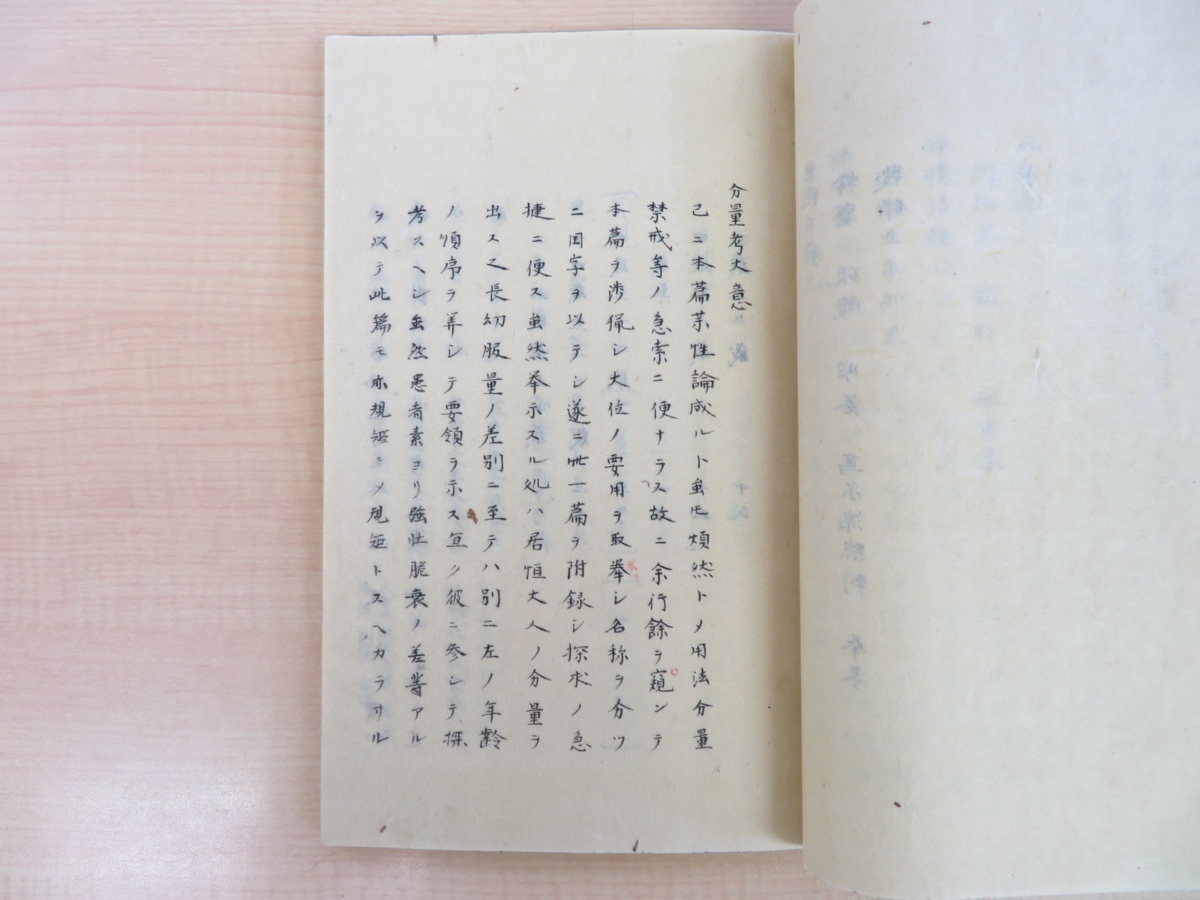 分量考大意
已ニ本篇茱性論成ルト虽モ煩然トメ用法分量
禁戒等ノ急索ニ便ナラス故ニ余行餘ヲ窺ンテ
本篇ヲ渉猟シ大位ノ要用ヲ取挙シ名称ヲ分ツ
ニ国字ヲ以テシ遂ニ此一篇ヲ附録シ探求ノ急
捷ニ便ス虽然挙示スル処ハ居恒大人ノ分量ヲ
出ス又長幼服量ノ差別ニ至テハ別ニ左ノ年齢
ノ順序ヲ弄シテ要領ヲ示ス宜ク彼ニ参シテ探
考スヘシ虽然患者素ヨリ強壮脆衰ノ差等アル
ヲ以テ此篇モ亦規矩ニメ規矩トスヘカラサル